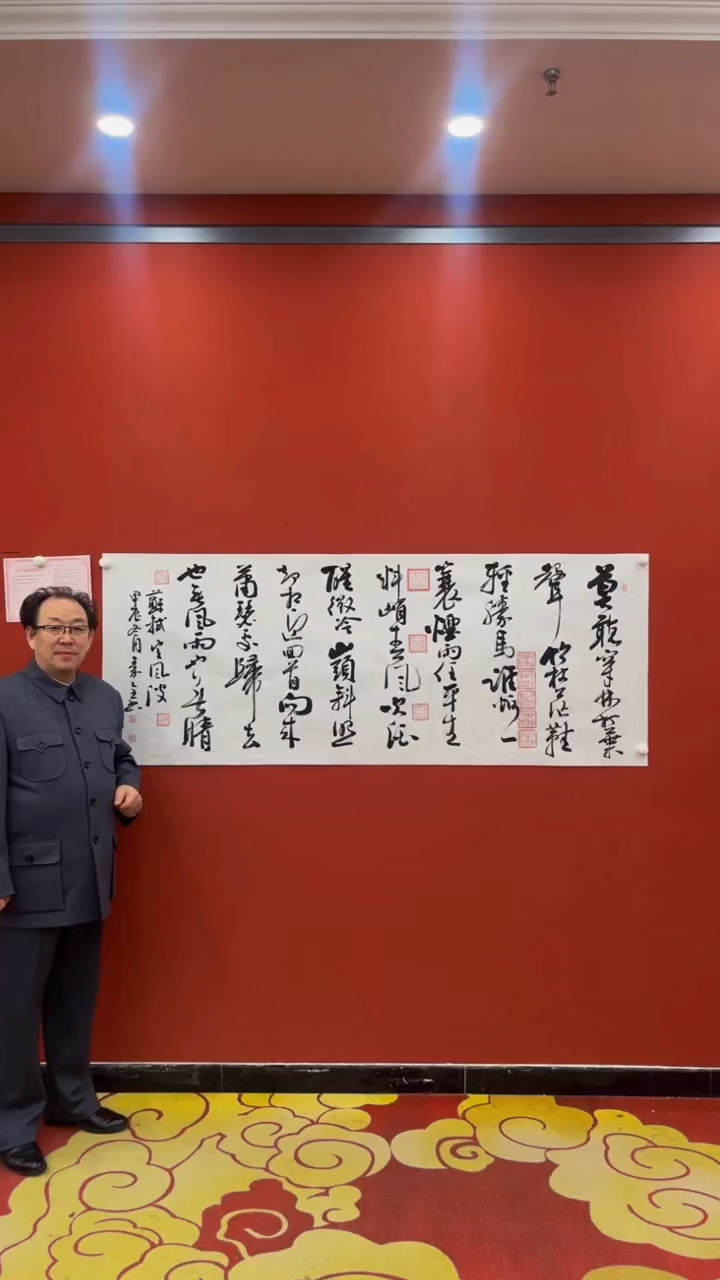 莫聽穿林打葉
聲竹杖芒鞋
輕勝馬誰怕一
蓑煙雨任平生
料峭春風吹酒
醒微冷山頭斜照
却相迎回首向來
蕭瑟處歸去
也無風雨也無晴
蘇軾定風波
甲辰冬月